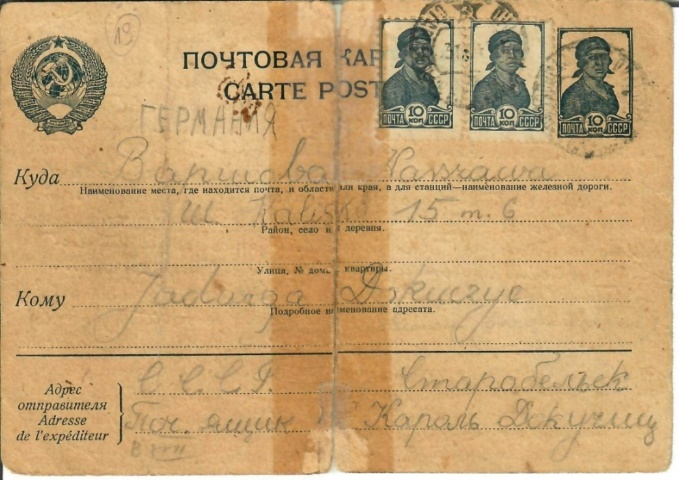 19
ПОЧТОВАЯ КАР
CARTE POST
10 КОП
ПОЧТА СССР
10 КОП
ПОЧТА СССР
10 КОП
ПОЧТА СССР
ГЕРМАНИЯ
Куда Варшава
Наименование места, где находится почта, и области или края, а для станций—наименование железной дороги.
15 m. 6
Район, село и деревня.
Улица, № дома квартиры.
Кому Jadwiga
Подробное наименование адресата.
Адрес отправителя
Adresse de l'expéditeur
С.С.С.Р. Старобельск
Поч. ящик Кароль